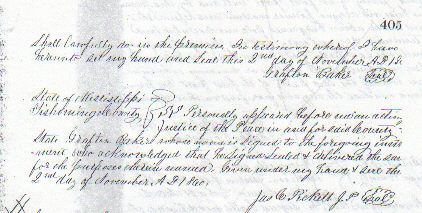 405
Shall lawfully do in the premises. In testimony whereof I have
hereunto set my hand and seal this 2nd day of November A.D. 18
Grafton Baker {Seal}
State of Mississippi
Tishomingo County } Personally appeared before me an acting
Justice of the Peace in and for said County
State Grafton Baker whose name is signed to the foregoing instr
ument who acknowledged that he signed sealed & delivered the same
for the purposes therein named. Given under my hand & seal the
2nd day of November A.D. 18
Jas C Pickett J.P. {Seal}